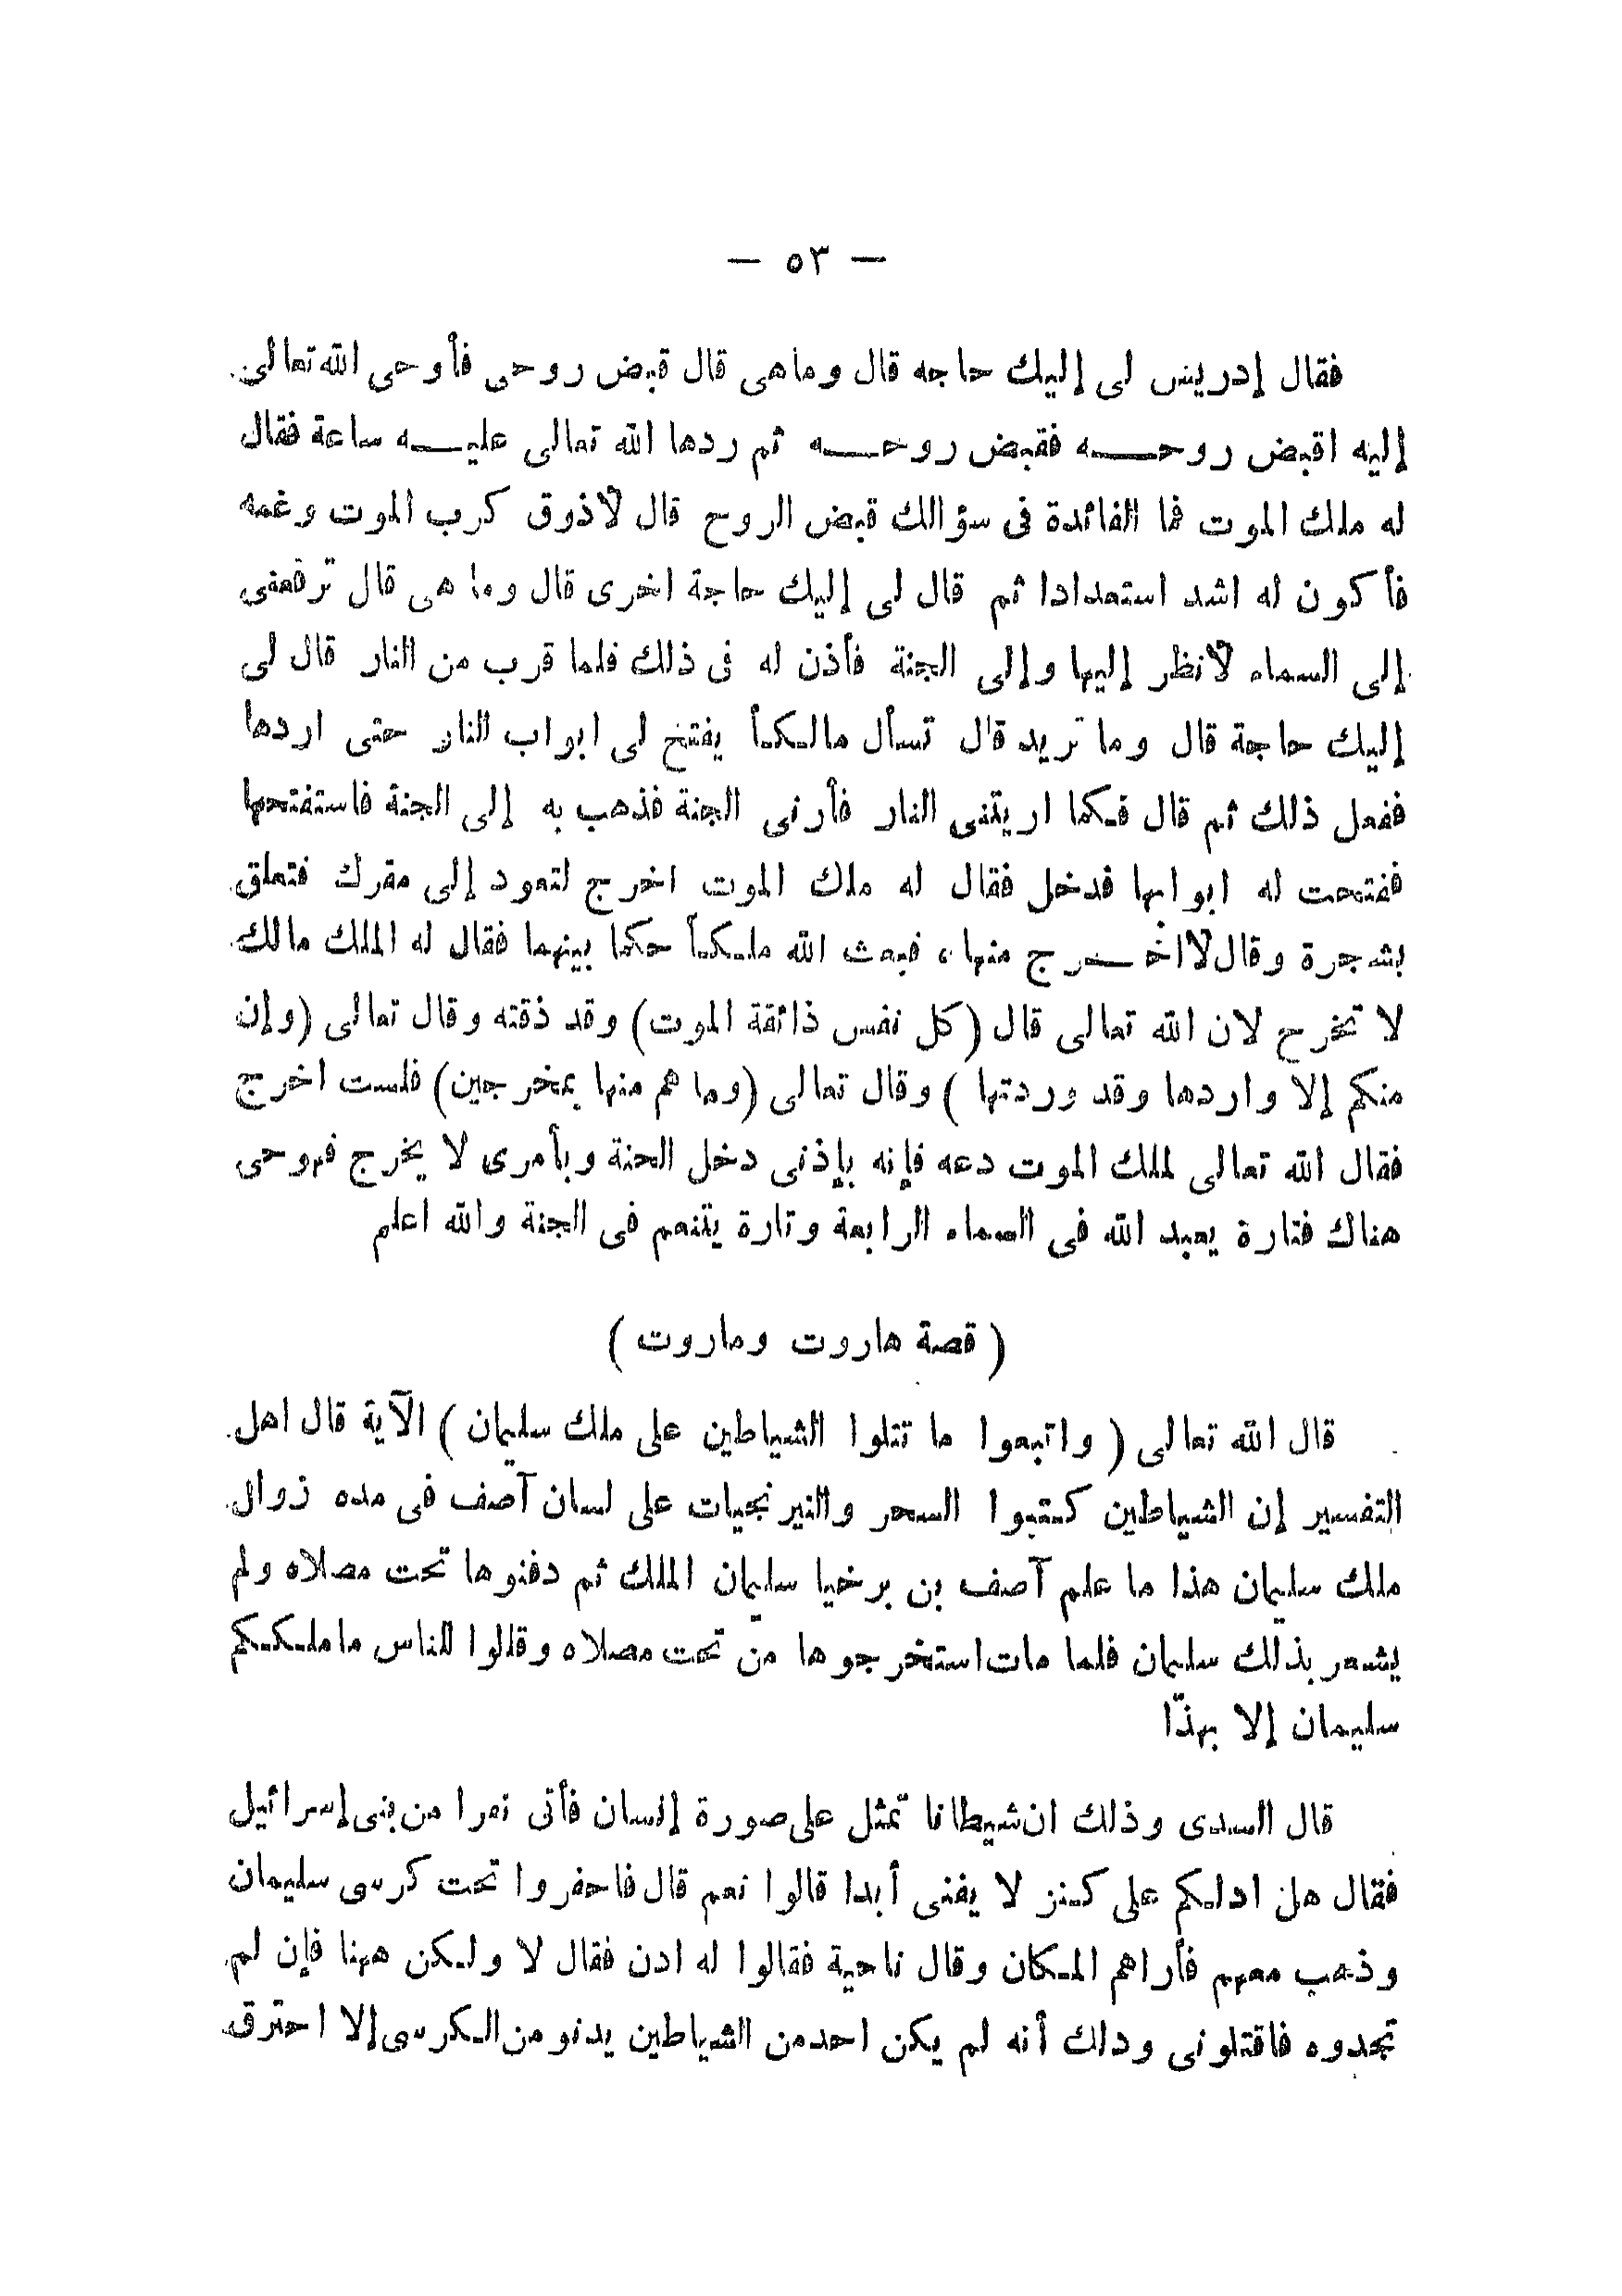 — ٥٣ —
فقال إدريس لى إليك حاجه قال وماهى قال قبض روحى فأوحى الله تعالى
إليه اقبض روحه فقبض روحه ثم ردها الله تعالى عليه ساعة فقال
له ملك الموت فما الفائدة فى سؤالك قبض الروح قال لأذوق كرب الموت وغمه
فأكون له اشد استعدادا ثم قال لى إليك حاجة اخرى قال وما هى قال ترفعنى
إلى السماء لأنظر إليها وإلى الجنة فأذن له فى ذلك فلما قرب من النار قال لى
إليك حاجة قال وما تريد قال تسأل مالكاً يفتح لى ابواب النار حتى اردها
ففعل ذلك ثم قال فكما اريتنى النار فأرنى الجنة فذهب به إلى الجنة فاستفتحها
ففتحت له ابوابها فدخل فقال له ملك الموت اخرج لتعود إلى مقرك فتعلق
بشجرة وقال لاأخرج منها، فبعث الله ملكاً حكما بينهما فقال له الملك مالك
لا تخرج لان الله تعالى قال (كل نفس ذائقة الموت) وقد ذقته وقال تعالى (وإن
منكم إلا واردها وقد وردتها ) وقال تعالى (وما هم منها بمخرجين) فلست اخرج
فقال الله تعالى لملك الموت دعه فإنه بإذنى دخل الجنة وبأمرى لا يخرج فهوحى
هناك فتارة يعبد الله فى السماء الرابعة وتارة يتنعم فى الجنة والله اعلم
( قصة هاروت وماروت )
قال الله تعالى ( واتبعوا ما تتلوا الشياطين على ملك سليمان ) الآية قال اهل
التفسير إن الشياطين كتبوا السحر والنيرنجيات على لسان آصف فى مده زوال
ملك سليمان هذا ما علم آصف بن برخيا سليمان الملك ثم دفنوها تحت مصلاه ولم
يشعر بذلك سليمان فلما مات استخرجوها من تحت مصلاه وقالوا للناس ماملككم
سليمان إلا بهذا
قال السدى وذلك ان شيطانا تمثل على صورة إنسان فأتى نفرا من بنى إسرائيل
فقال هل ادلكم على كنز لا يفنى أبدا قالوا نعم قال فاحفروا تحت كرسى سليمان
وذهب معهم فأراهم المكان وقال ناحية فقالوا له ادن فقال لا ولكن ههنا فإن لم
تجدوه فاقتلونى وذلك أنه لم يكن احد من الشياطين يدنو من الكرسى إلا احترق